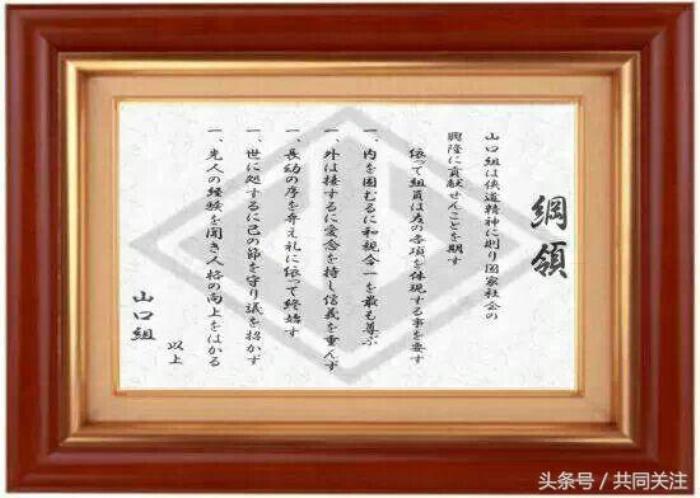 綱領
山口組は侠道精神に則り国家社会の
興隆に貢献せんことを期す
依って組員は左の各項を体現する事を要す
一、内を固むるに和親合一を最も尊ぶ
一、外は接するに愛念を持し信義を重んず
一、長幼の序を弁え礼に依って終始す
一、世に処するに己の節を守り譏を招かず
一、先人の経験を聞き人格の向上をはかる
以上
山口組
头条号 / 共同关注